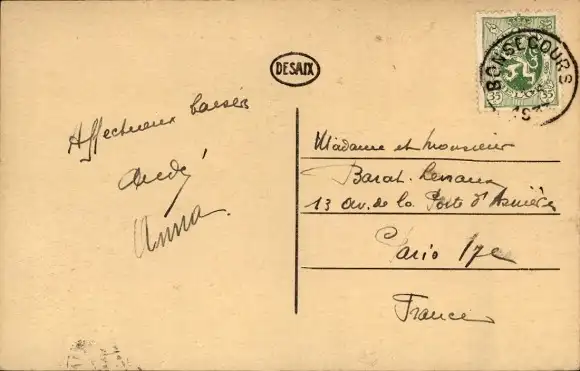 DESAIX
BONSECOURS
35 35
Affectueux baisers
André
Anna
Madame et Monsieur
Barat
13 av. de la Porte d'Asnières
Paris 17e
France